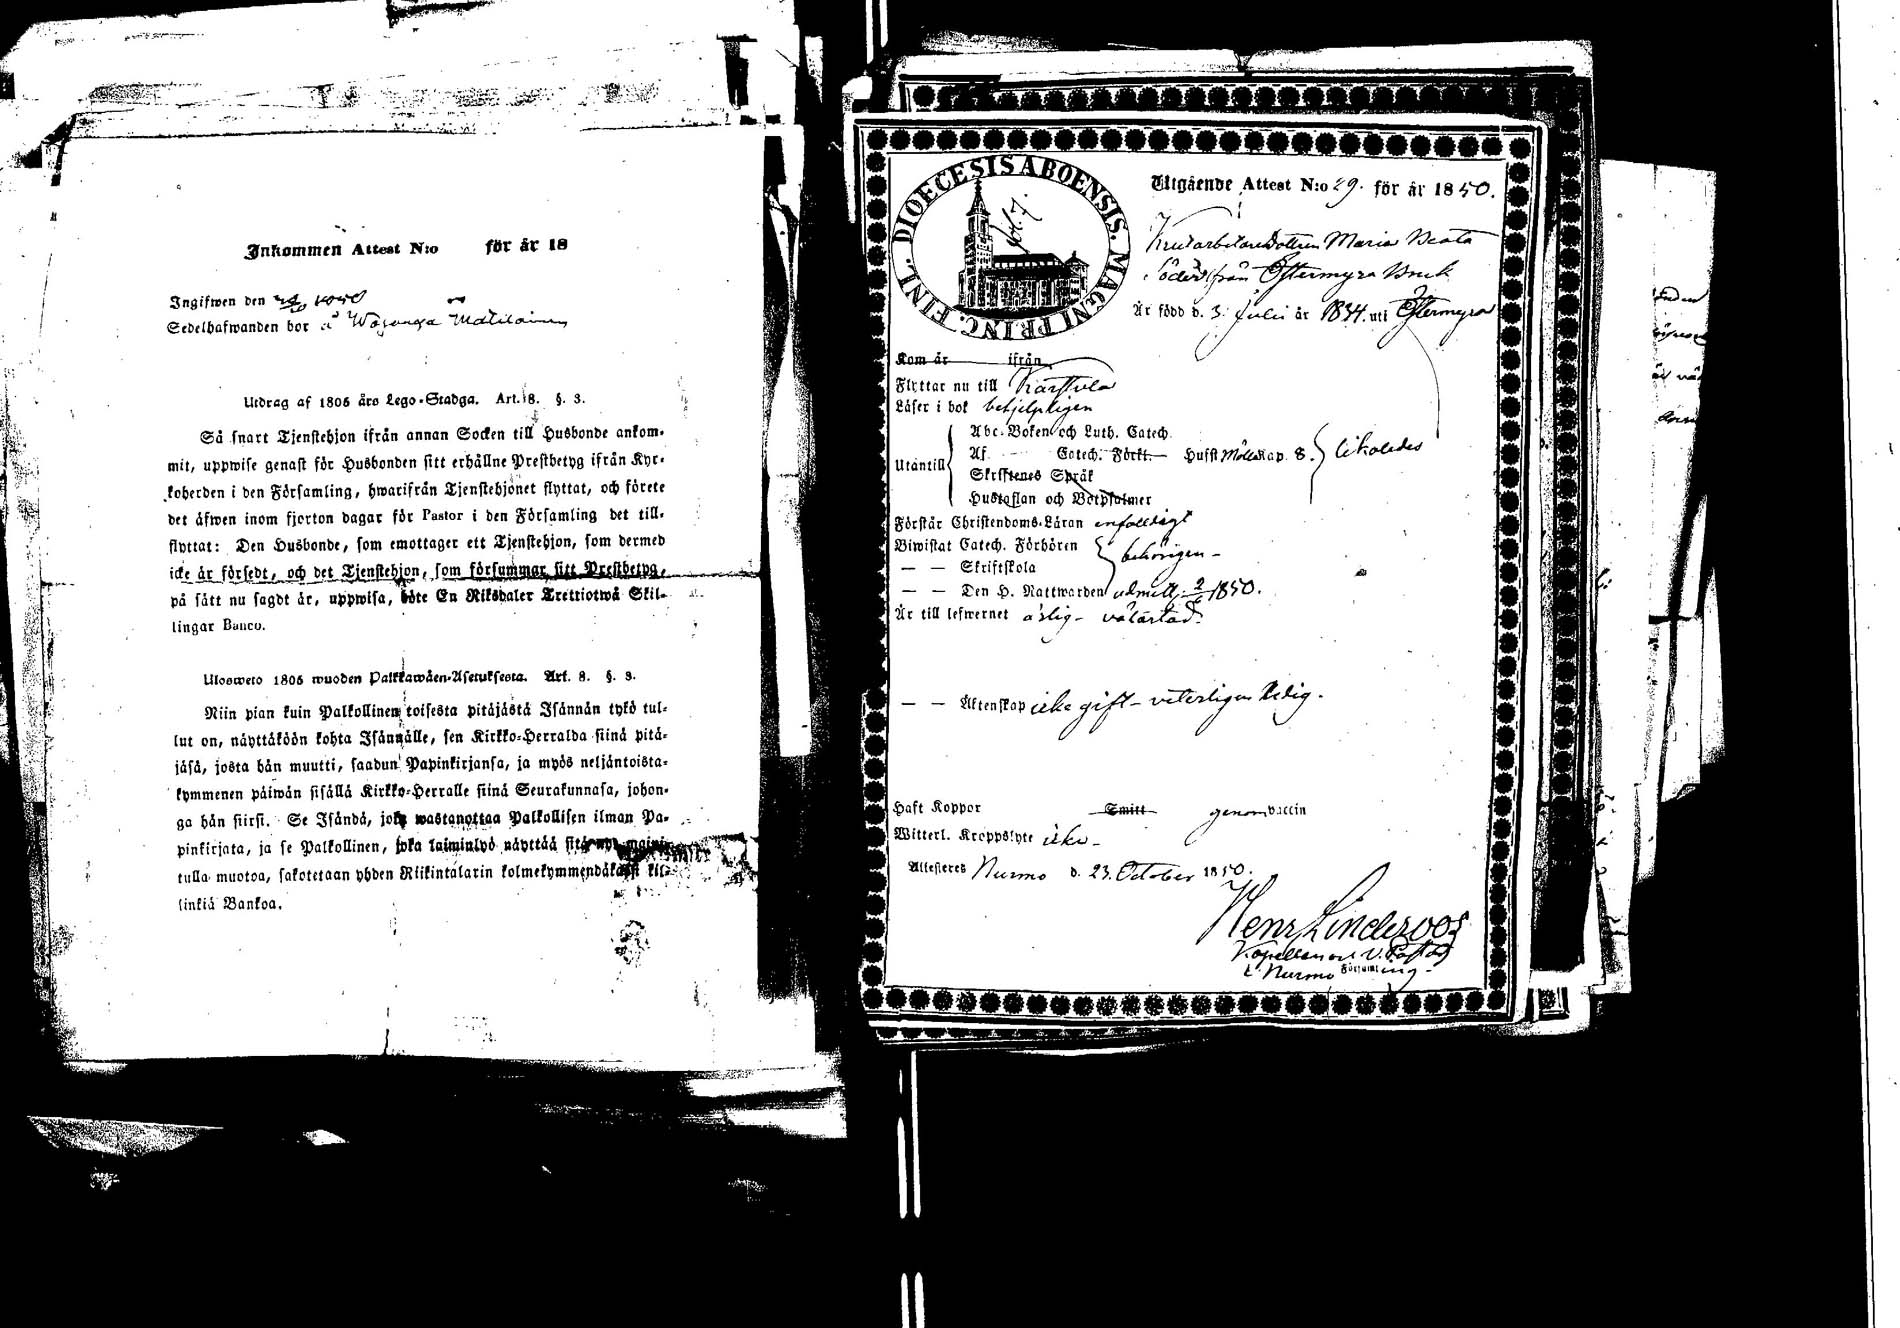 Inkommen Attest N:o för år 18
Ingifwen den 1850
Sedelhafwanden bor å Wäganga Matilainen
Utdrag af 1805 års Lego-Stadga. Art. 8. §. 3.
Så snart Tjenstehjon ifrån annan Socken till Husbonde ankom-
mit, uppwise genast för Husbonden sitt erhållne Prestbetyg ifrån Kyr-
koherden i den Församling, hwarifrån Tjenstehjonet flyttat, och förete
det äfwen inom fjorton dagar för Pastor i den Församling det till-
flyttat: Den Husbonde, som emottager ett Tjenstehjon, som dermed
icke är försedt, och det Tjenstehjon, som försummar sitt Prestbetyg,
på sätt nu sagdt är, uppwisa, böte En Riksdaler Trettiotwå Skil-
lingar Banco.
Ulosweto 1805 wuoden Palkkawäen-Asetuksesta. Art. 8. §. 3.
Niin pian kuin Palkollinen toisesta pitäjästä Isännän tykö tul-
lut on, näyttäköön kohta Isännälle, sen Kirkko-Herralda siinä pitä-
jäsä, josta hän muutti, saadun Papinkirjansa, ja myös neljäntoista-
kymmenen päiwän sisällä Kirkko-Herralle siinä Seurakunnasa, johon-
ga hän siirsi. Se Isändä, joka wastanottaa Palkollisen ilman Pa-
pinkirjata, ja se Palkollinen, joka laiminlyö näyttää sitä nyt maini-
tulla muotoa, sakotetaan yhden Riikintalarin kolmekymmendäkaksi kil-
linkiä Bankoa.
DIOECESIS ABOENSIS. MAGNI PRINC. FINL.
fol. 7.
Utgående Attest N:o 29. för år 1850.
Krutarbetaredottren Maria Beata
Söder från Östermyra Bruk
Är född d. 3 Julii år 1834. uti Östermyra
Kom år ifrån
Flyttar nu till Karstula
Läser i bok behjelpligen
Utantill
Abc-Boken och Luth. Catech.
Af Catech. Förkl. Hufst. Kap. 8. likaledes
Skriftenes Språk
Hustaflan och Botpsalmer
Förstår Christendoms-Läran enfaldigt
Biwistat Catech. Förhören behörigen –
— — Skriftskola
— — Den H. Nattwarden admitt. 2/6 1850.
Är till lefwernet ärlig – välartad.
— — Äktenskap icke gift – veterligen ledig.
Haft Koppor Smitt genom vaccin
Witterl. Kroppslyte icke –
Attesteres Nurmo d. 23. October 1850.
Henr Linderoos
Kapellan och V. Pastor
i Nurmo Församling –